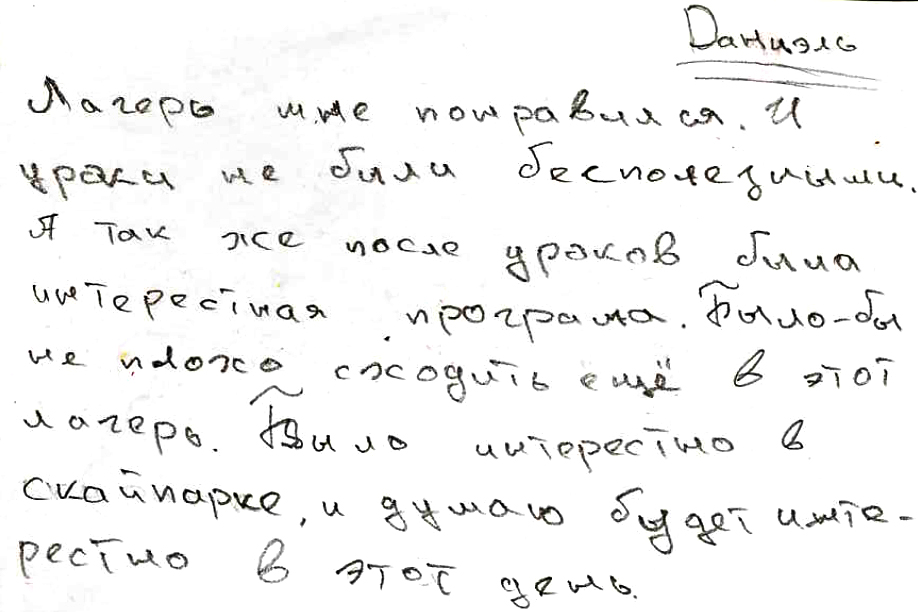 Даниэль
Лагерь мне понравился. И
уроки не были бесполезными.
А так же после уроков была
интерестная програма. Было-бы
не плохо сходить ещё в этот
лагерь. Было интерестно в
скайпарке, и думаю будет инте-
рестно в этот день.